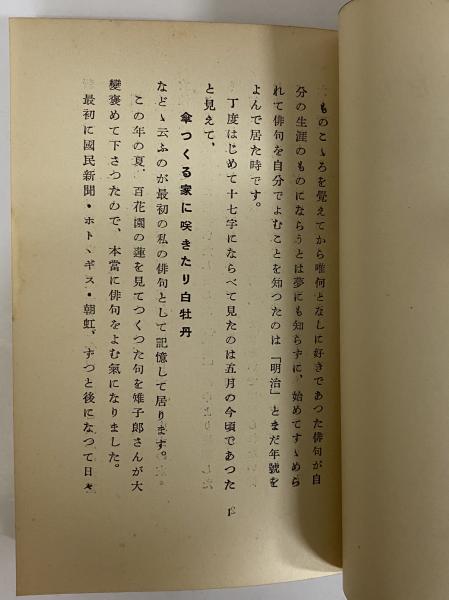 ものこゝろを覚えてから唯何となしに好きであつた俳句が自
分の生涯のものにならうとは夢にも知らずに、始めてすゝめら
れて俳句を自分でよむことを知つたのは「明治」とまだ年號を
よんで居た時です。
丁度はじめて十七字にならべて見たのは五月の今頃であつた
と見えて、
傘つくる家に咲きたり白牡丹
などゝ云ふのが最初の私の俳句として記憶して居ります。
この年の夏、百花園の蓮を見てつくつた句を雉子郎さんが大
變褒めて下さつたので、本當に俳句をよむ氣になりました。
最初に國民新聞・ホトヽギス・朝虹、ずつと後になつて日